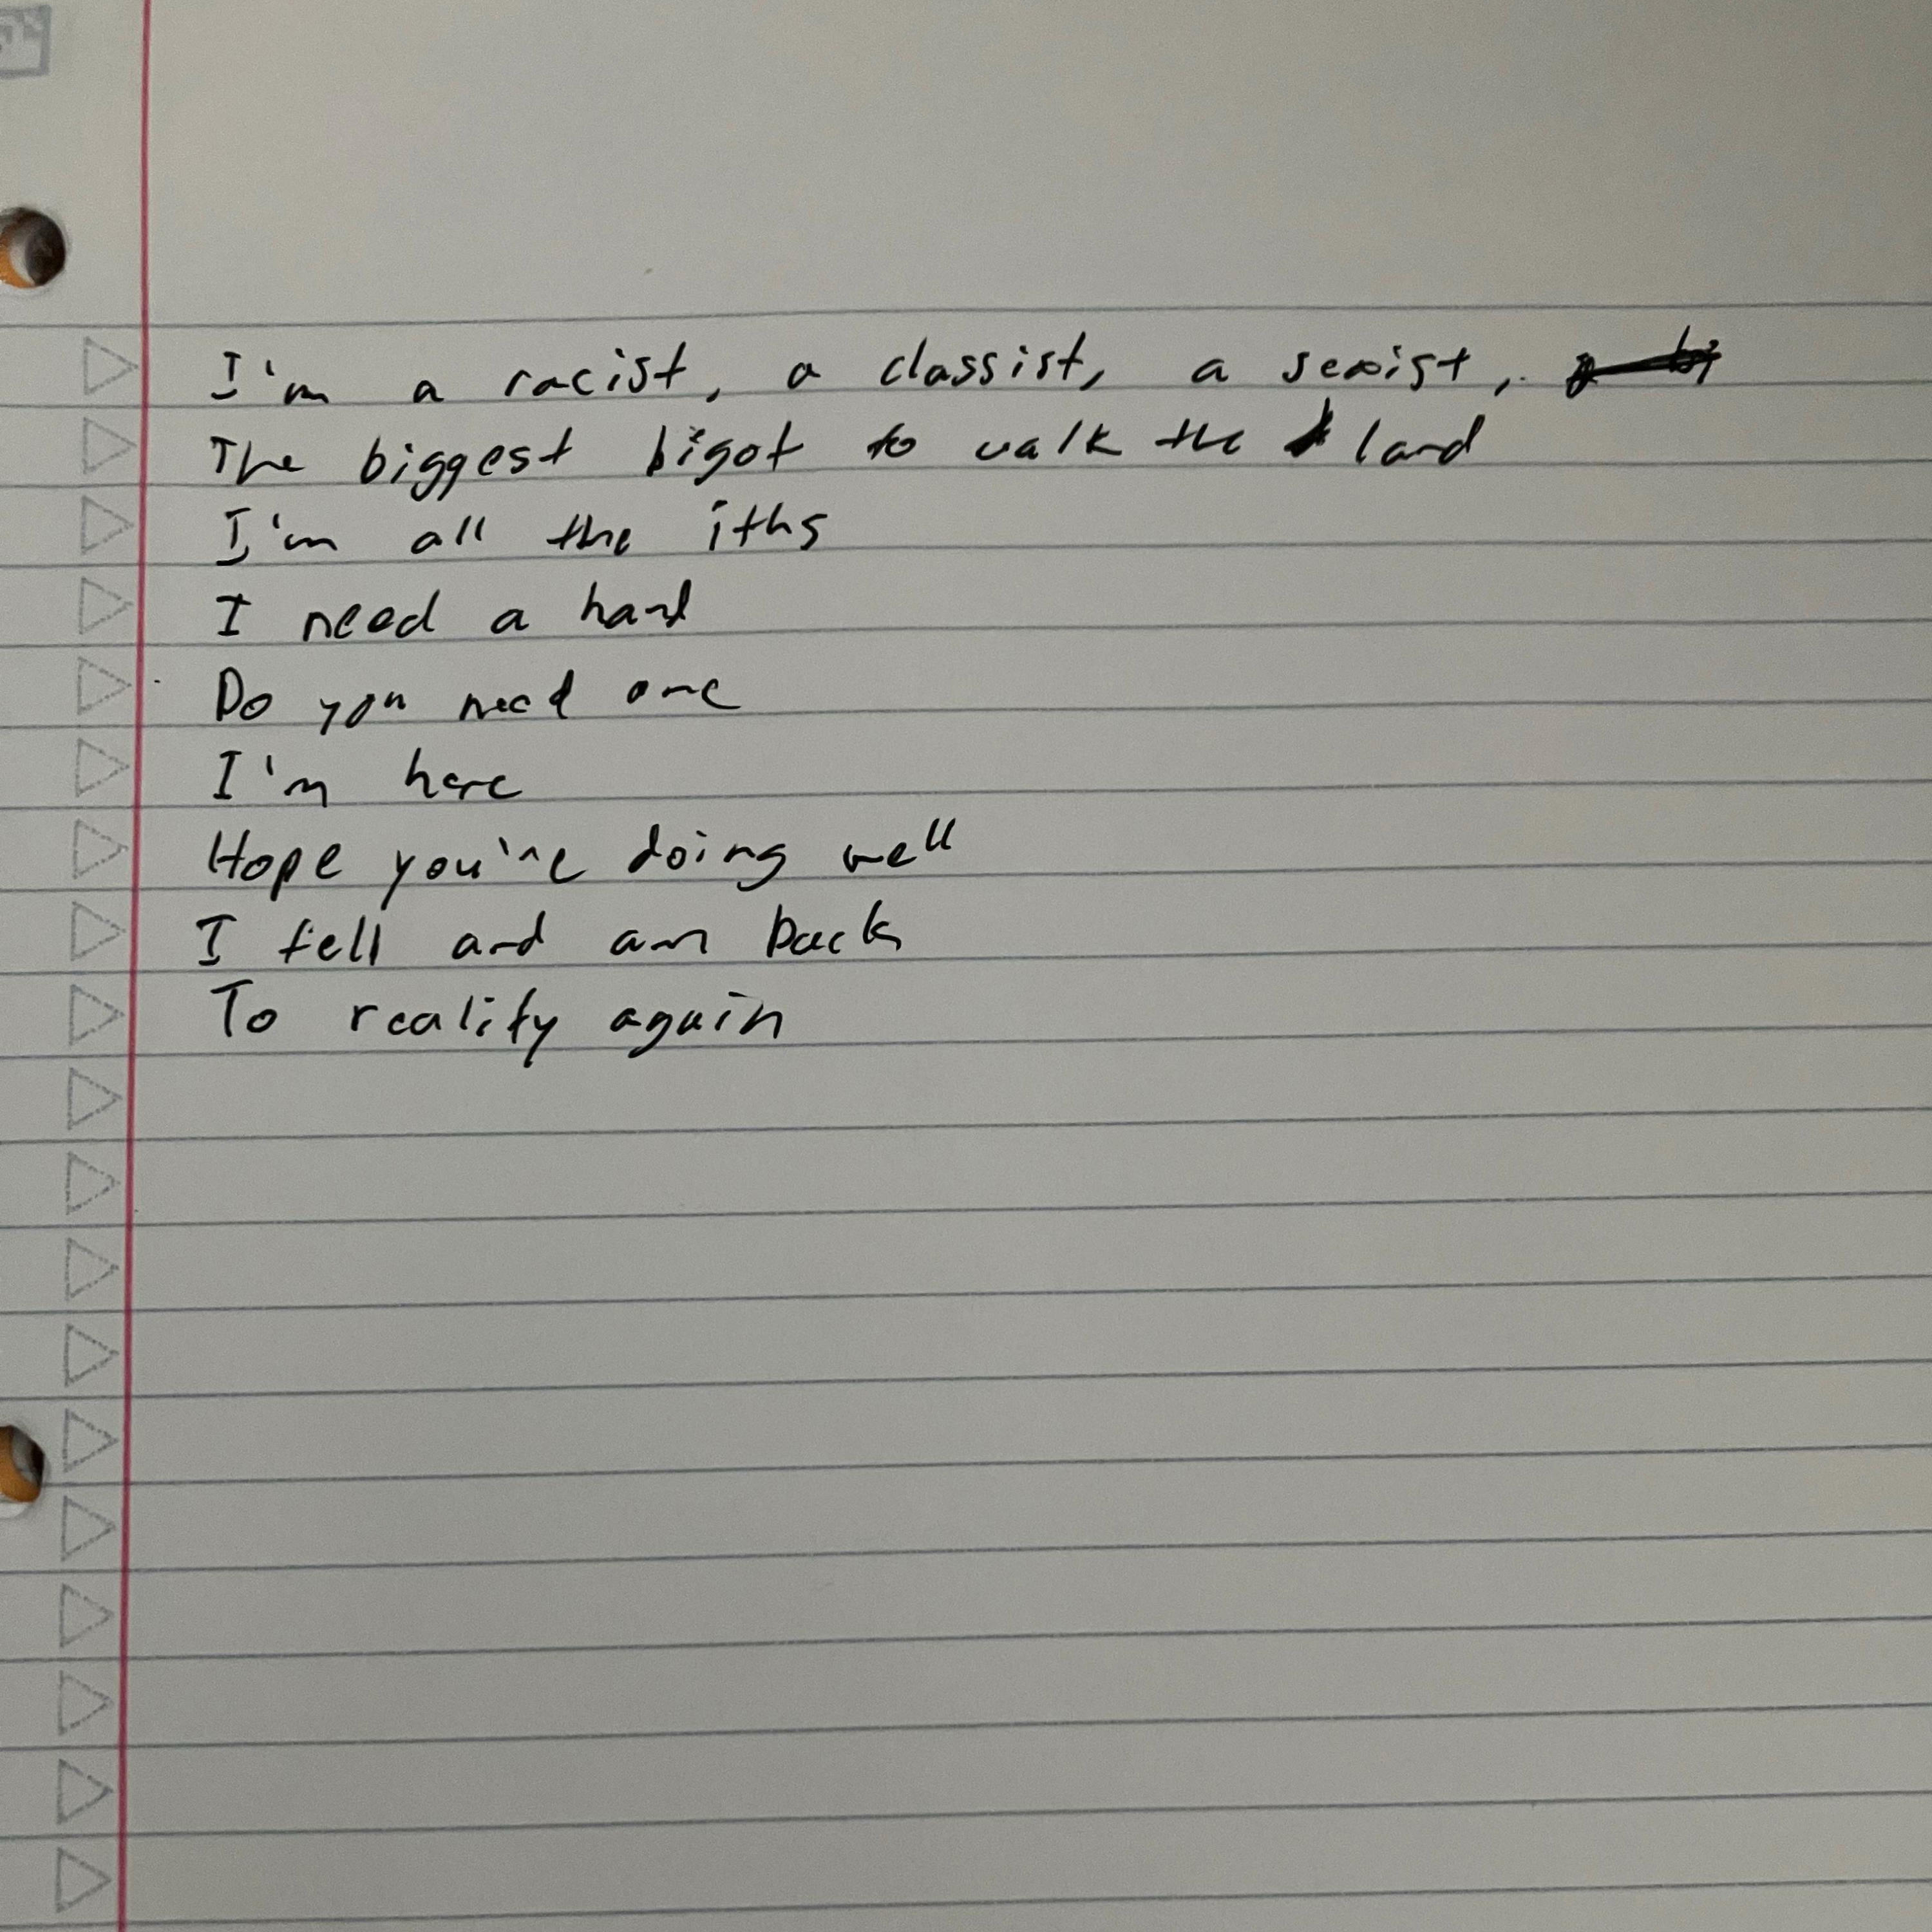 I'm a racist, a classist, a sexist,
The biggest bigot to walk the land
I'm all the iths
I need a hand
Do you need one
I'm here
Hope you're doing well
I fell and am back
To reality again